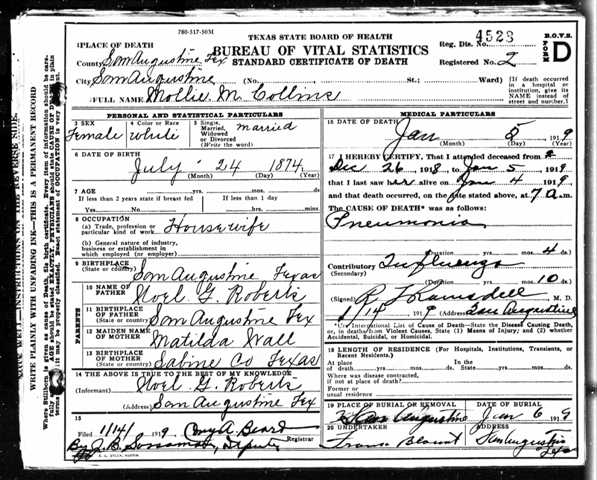 780-317-5031
TEXAS STATE BOARD OF HEALTH
BUREAU OF VITAL STATISTICS
STANDARD CERTIFICATE OF DEATH
Reg. Dis. No. 4523
Registered No. 2
B.O.V.S.
FORM D
PLACE OF DEATH
County San Augustine Tex
City San Augustine (No. St.; Ward)
(If death occurred in a hospital or institution, give its NAME instead of street and number.)
FULL NAME Mollie M Collins
PERSONAL AND STATISTICAL PARTICULARS
3 SEX Female
4 Color or Race white
5 Single, Married, Widowed or Divorced (Write the word) married
6 DATE OF BIRTH
July 24 1874
(Month) (Day) (Year)
7 AGE yrs. mos. ds.
If less than 2 years state if breast fed
If less than 1 day
Yes No hrs. min.
8 OCCUPATION
(a) Trade, profession or particular kind of work Housewife
(b) General nature of industry, business or establishment in which employed (or employer)
9 BIRTHPLACE
(State or county) San Augustine Texas
PARENTS
10 NAME OF FATHER Noel G. Roberts
11 BIRTHPLACE OF FATHER (State or county) San Augustine Tex
12 MAIDEN NAME OF MOTHER Matilda Wall
13 BIRTHPLACE OF MOTHER (State or county) Sabine Co Texas
14 THE ABOVE IS TRUE TO THE BEST OF MY KNOWLEDGE
(Informant) Noel G. Roberts
(Address) San Augustine Tex
15
Filed 1/14/1919
Registrar
Deputy
MEDICAL PARTICULARS
DATE OF DEATH
Jan 5 1919
(Month) (Day) (Year)
17 I HEREBY CERTIFY, That I attended deceased from
Dec 26 1918 to Jan 5 1919
that I last saw her alive on Jan 4 1919
and that death occurred, on the date stated above, at 7 a m.
The CAUSE OF DEATH was as follows:
Pneumonia
(Duration) yrs. mos. 4 ds.
Contributory Influenza
(Secondary)
(Duration) yrs. mos. 10 ds.
(Signed) M. D.
1/14 1919 (Address) San Augustine
Use International List of Cause of Death—State the Disease Causing Death, or, in deaths from Violent Causes, State (1) Means of Injury; and (2) whether Accidental, Suicidal, or Homicidal.
18 LENGTH OF RESIDENCE (For Hospitals, Institutions, Transients, or Recent Residents.)
At place of death yrs. mos. ds. In the State yrs. mos. ds.
Where was disease contracted, if not at place of death?
Former or usual residence
19 PLACE OF BURIAL OR REMOVAL San Augustine
DATE OF BURIAL Jan 6 1919
20 UNDERTAKER Blount
ADDRESS San Augustine Tex
WRITE PLAINLY WITH UNFADING INK—THIS IS A PERMANENT RECORD